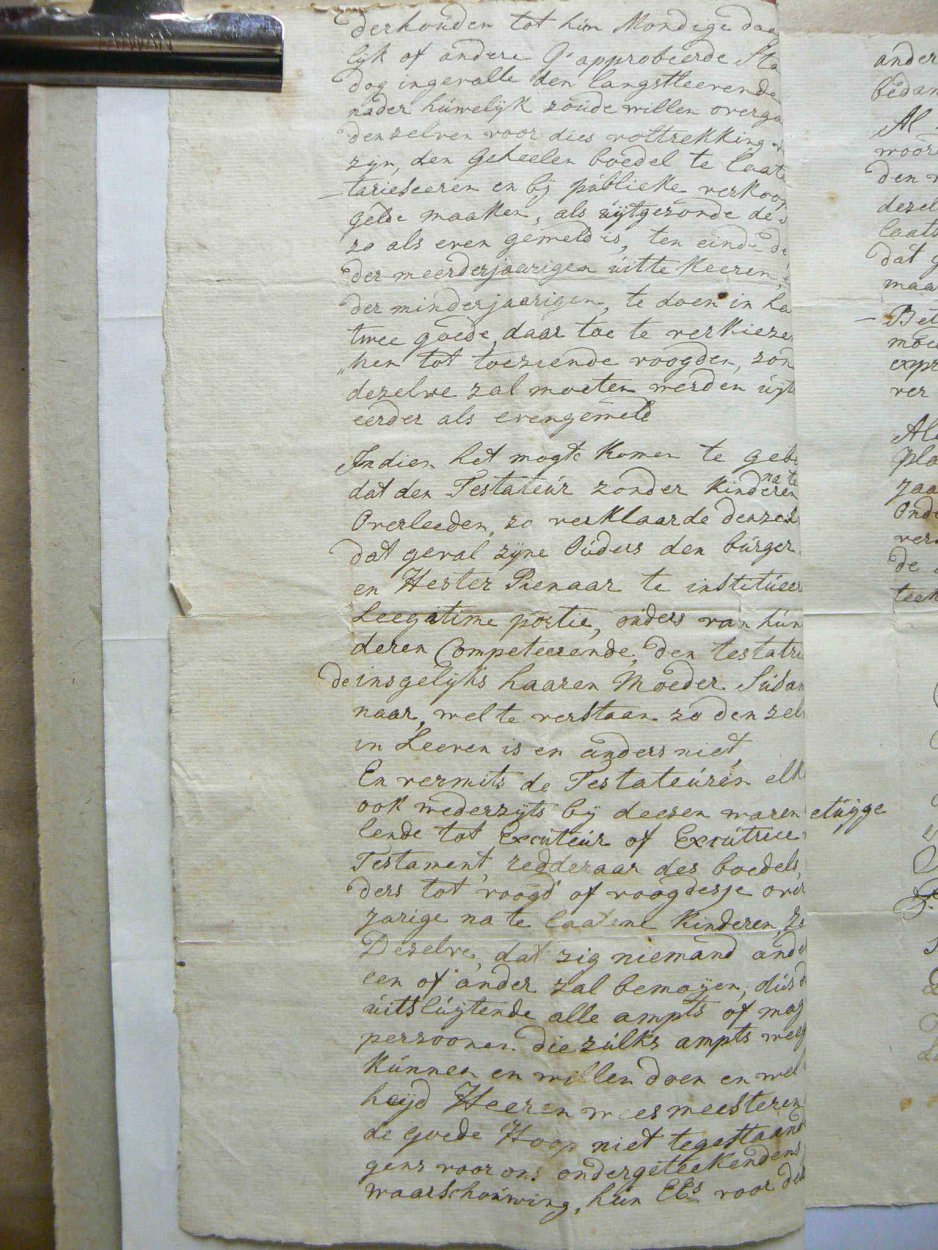 derhouden tot hún Mondige dag
lijk of andere G'approbeerde Sta
dog ingevalle den langstleevende
nader húwelijk zoúde willen overga
denzelven voor dies voltrekking
zijn, den Geheelen boedel te laate
tarieseeren en bij públieke verkoop
gelde maaken, als úijtgezonde de
zo als even gemeld is, ten einde de
der meerderjaarigen úitte keeren,
der minderjaarigen, te doen in ha
twee goede daar toe te verkieze
hen tot toeziende voogden, zon
dezelve zal moeten werden úijt
eerder als evengemeld
Indien het mogte komen te gebe
na te
dat den Testateúr zonder kinderen
Overleeden, zo verklaarde denzel
dat geval zijne Oúders den búrger
en Hester Pienaar te institúeer
Leegatime portie, oúders van hún
deren Competeerende, den testatri
de insgelijks haaren Moeder Súsan
naar, wel te verstaan zo denzel
in Leeven is en anders niet
En vermits de Testateúren elk
ook wederzijts bij deesen waren
lende tot Excúteúr of Excútrice
Testament, redderaar des boedels,
ders tot voogd of voogdesje over
jarige na te laatene Kinderen, zo
Dezelve, dat zig niemand ande
een of ander zal bemoijen, dús
úitslúijtende alle ampts of mag
persoonen die zúlks ampts weeg
kúnnen en willen doen en wel
heijd Heeren weesmeesteren
de goede Hoop niet tegestaand
gens voor ons ondergeteekendens
waarschouwing, hún Ets voor de
elúijge
ander
bedan
Al
woor
den
dezel
laats
dat g
maa
Bet
moe
expr
ver
Ale
pla
zaa
Onde
vero
de
teek